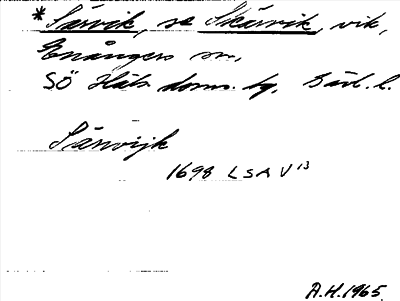 *Sarvik, se Skärvik, vik,
Enångers sn,
SÖ Häls. doms. bg, Gävl. l.
Särvijk
1698 LSA V 13
A.H. 1965